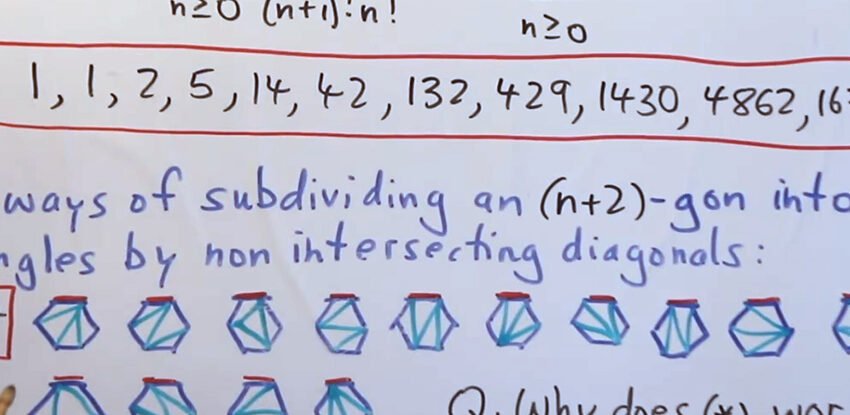 n≥0 (n+1)! n!
n≥0
1, 1, 2, 5, 14, 42, 132, 429, 1430, 4862, 16
ways of subdividing an (n+2)-gon into
ngles by non intersecting diagonals:
Q. Why does (*) wor